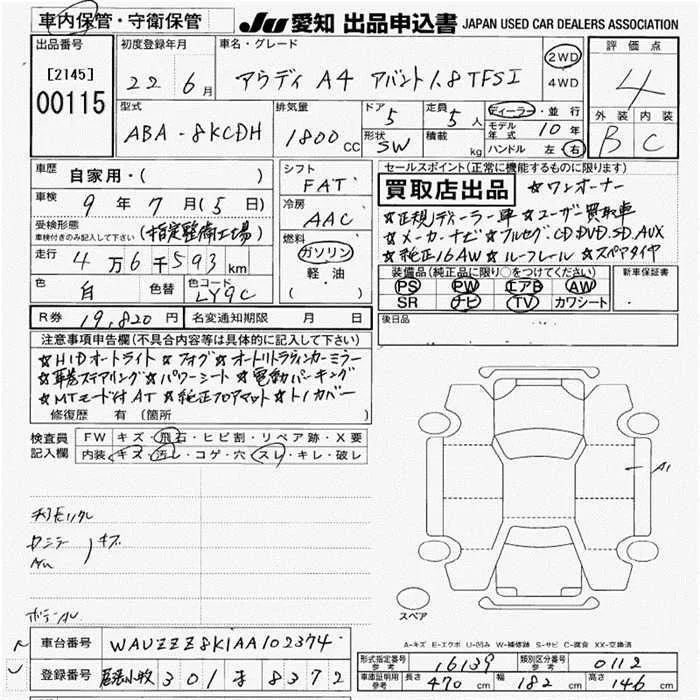 車内保管・守衛保管
JU 愛知 出品申込書 JAPAN USED CAR DEALERS ASSOCIATION
出品番号
[2145]
00115
初度登録年月
22 6月
車名・グレード
アウディ A4 アバント 1.8 TFSI
2WD
4WD
評価点
4
外装 内装
B C
型式
ABA-8KCDH
排気量
1800cc
ドア 5
形状 SW
定員 5人
積載 kg
ディーラー・並行
モデル年式 10年
ハンドル 左・右
車歴
自家用・( )
車検
9年 7月(5日)
受検形態
車検付きのみ記入して下さい
(指定整備工場)
走行
4万6千593km
色 白 色替 色コード LY9C
シフト
FAT
冷房
AAC
燃料
ガソリン
軽油
( )
セールスポイント(正常に機能するものに限ります)
買取店出品 ☆ワンオーナー
☆正規ディーラー車 ☆ユーザー買取車
☆メーカーナビ ☆フルセグ.CD.DVD.SD.AUX
☆純正16AW ☆ルーフレール ☆スペアタイヤ
装備品(純正品に限り○をつけてください)
PS PW エアB AW
SR ナビ TV カワシート
新車保証書
R券 19,820円 名変通知期限 月 日
後日品
注意事項申告欄(不具合内容等は具体的に記入して下さい)
☆HIDオートライト ☆フォグ ☆オートリトラウィンカーミラー
☆革巻ステアリング ☆パワーシート ☆電動パーキング
☆MTモード付AT ☆純正フロアマット ☆トノカバー
修復歴 有 (箇所 )
検査員
記入欄
FW キズ・飛石・ヒビ割・リペア跡・X要
内装 キズ・汚レ・コゲ・穴 スレ・キレ・破レ
キズ
A1
スペア
A-キズ E-エクボ U-凹み W-補修跡 S-サビ C-腐食 XX-交換済
車台番号 WAUZZZ8K1AA102374
登録番号 尾張小牧 301 す 8372
形式指定番号 参考 16139 類別区分番号 参考 0112
車庫証明用 参考 長さ 470cm 幅 182cm 高さ 146cm